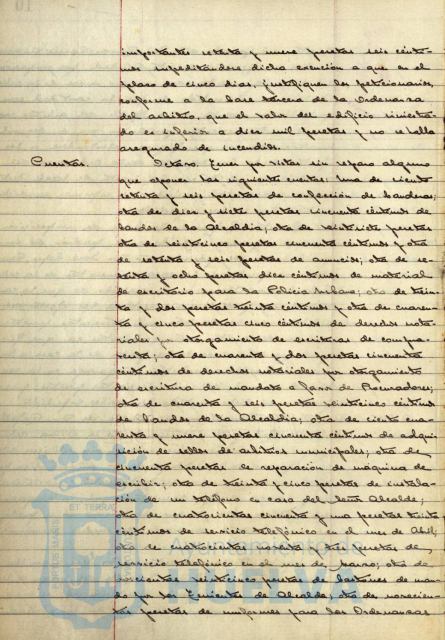 importantes setenta y nueve pesetas seis cénti-
mos supeditándose dicha exención a que en el
plazo de cinco días, justifiquen los peticionarios,
conforme a la base tercera de la Ordenanza
del arbitrio, que el valor del edificio siniestra-
do es inferior a diez mil pesetas y no se halla
asegurado de incendios.
Cuentas.
Octavo. Tener por vistas sin reparo alguno
que oponer las siguientes cuentas: Una de ciento
setenta y seis pesetas de confección de banderas;
otra de diez y siete pesetas cincuenta céntimos de
bandos de la Alcaldía; otra de veintisiete pesetas
otra de veinticinco pesetas cincuenta céntimos y otra
de setenta y seis pesetas de anuncios; otra de se-
senta y ocho pesetas diez céntimos de material
de escritorio para la Policía Urbana; otra de trein-
ta y dos pesetas treinta céntimos y otra de cuaren-
ta y cinco pesetas cinco céntimos de derechos nota-
riales por otorgamiento de escrituras de compra-
venta; otra de cuarenta y dos pesetas cincuenta
céntimos de derechos notariales por otorgamiento
de escritura de mandato a favor de Procuradores;
otra de cuarenta y seis pesetas veinticinco céntimos
de bandos de la Alcaldía; otra de ciento cua-
renta y nueve pesetas cincuenta céntimos de adqui-
sición de sellos de arbitrios municipales; otra de
cincuenta pesetas de reparación de máquina de
escribir; otra de treinta y cinco pesetas de instala-
ción de un teléfono en casa del Señor Alcalde;
otra de cuatrocientas cincuenta y una pesetas treinta
céntimos de servicio telefónico en el mes de Abril;
otra de cuatrocientas noventa y tres pesetas de
servicio telefónico en el mes de Marzo; otra de
novecientas veinticinco pesetas de bastones de man-
do por los Tenientes de Alcalde; otra de novecien-
tas pesetas de uniformes para los Ordenanzas
ET TERRA
Ayuntamiento de